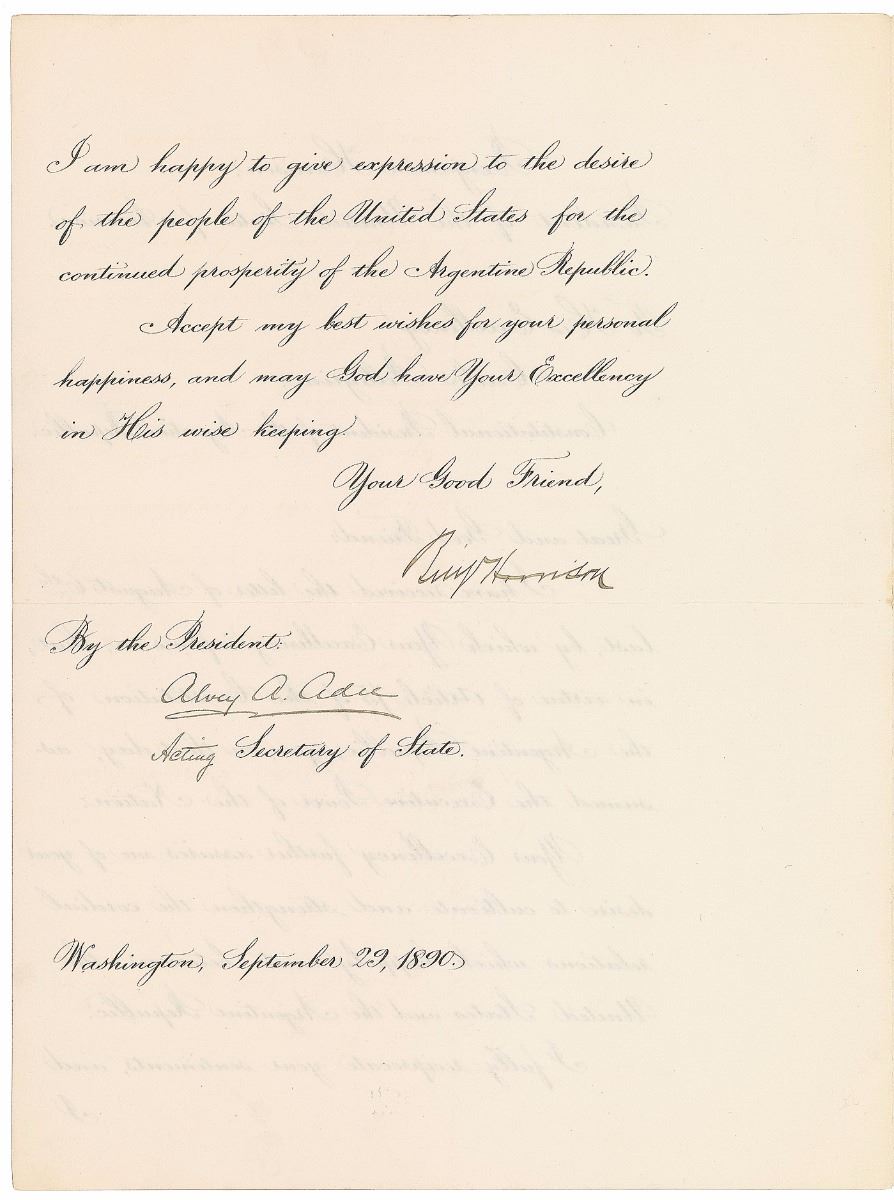 I am happy to give expression to the desire
of the people of the United States for the
continued prosperity of the Argentine Republic.
Accept my best wishes for your personal
happiness, and may God have Your Excellency
in His wise keeping.
Your Good Friend,
Benj Harrison
By the President:
Alvey A. Adee
Acting Secretary of State.
Washington, September 29, 1890.